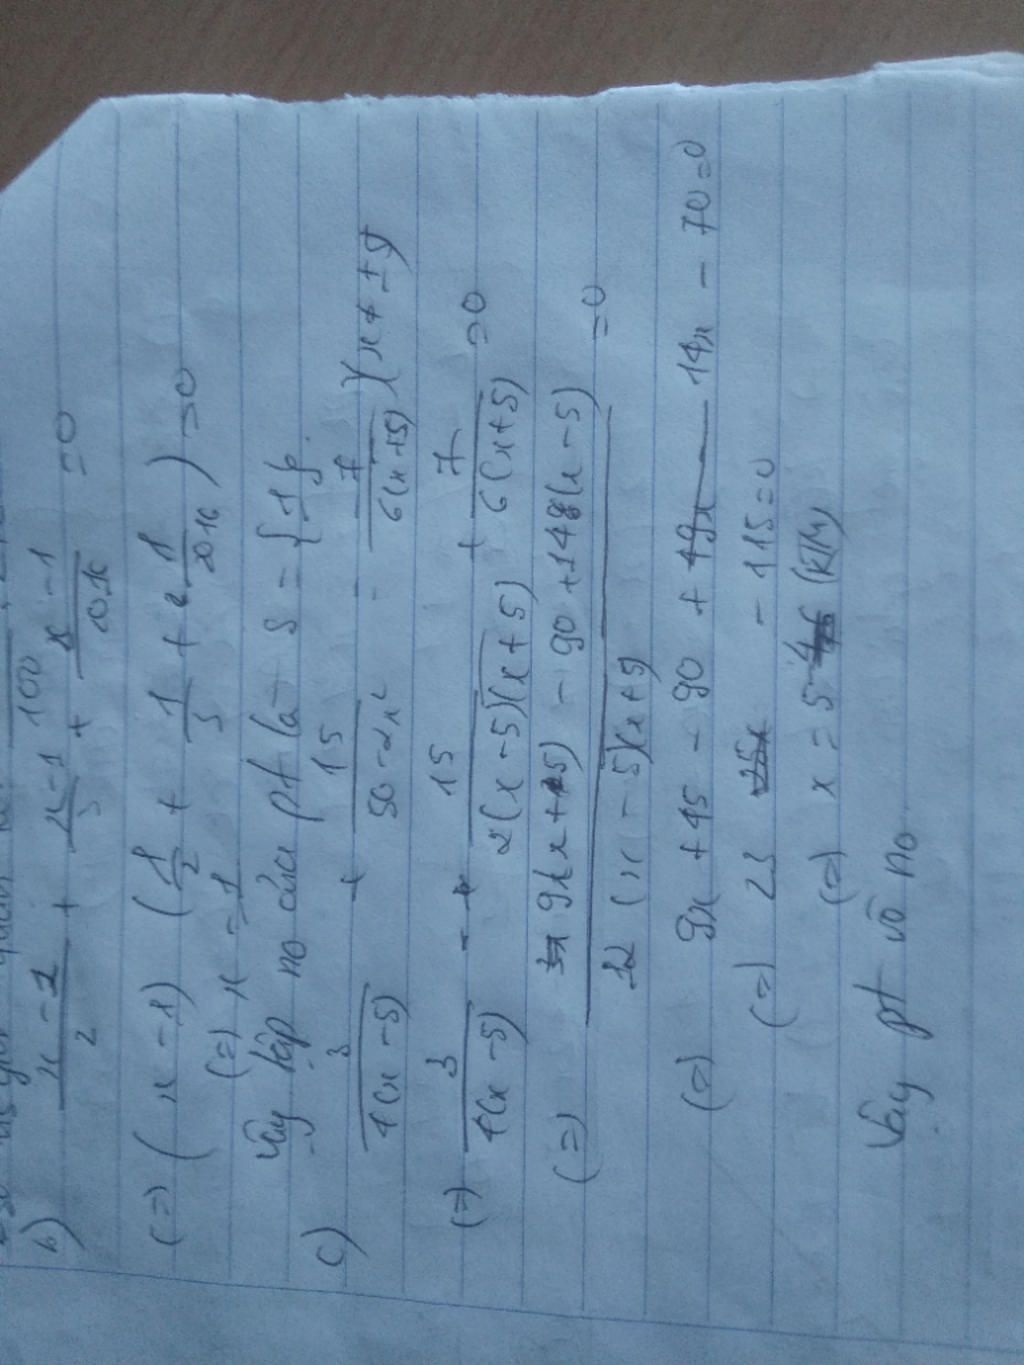 b) x-1/2 + x-1/3 + x-1/2016 =0
(=) (x-1) (1/2 + 1/3 + 1/2016) =0
(=) x=1
Vậy tập no của pt là S = {1}.
c) 3/4(x-5) + 15/50-2x² = - 7/6(x+5) (x ≠ ±5)
(=) 3/4(x-5) - 15/2(x-5)(x+5) + 7/6(x+5) =0
(=) 9(x+5) - 90 + 14(x-5)/12(x-5)(x+5) =0
(=) 9x + 45 - 90 + 14x - 70=0
(=) 23 - 115=0
(=) x = 5 (KTM)
Vậy pt vô no